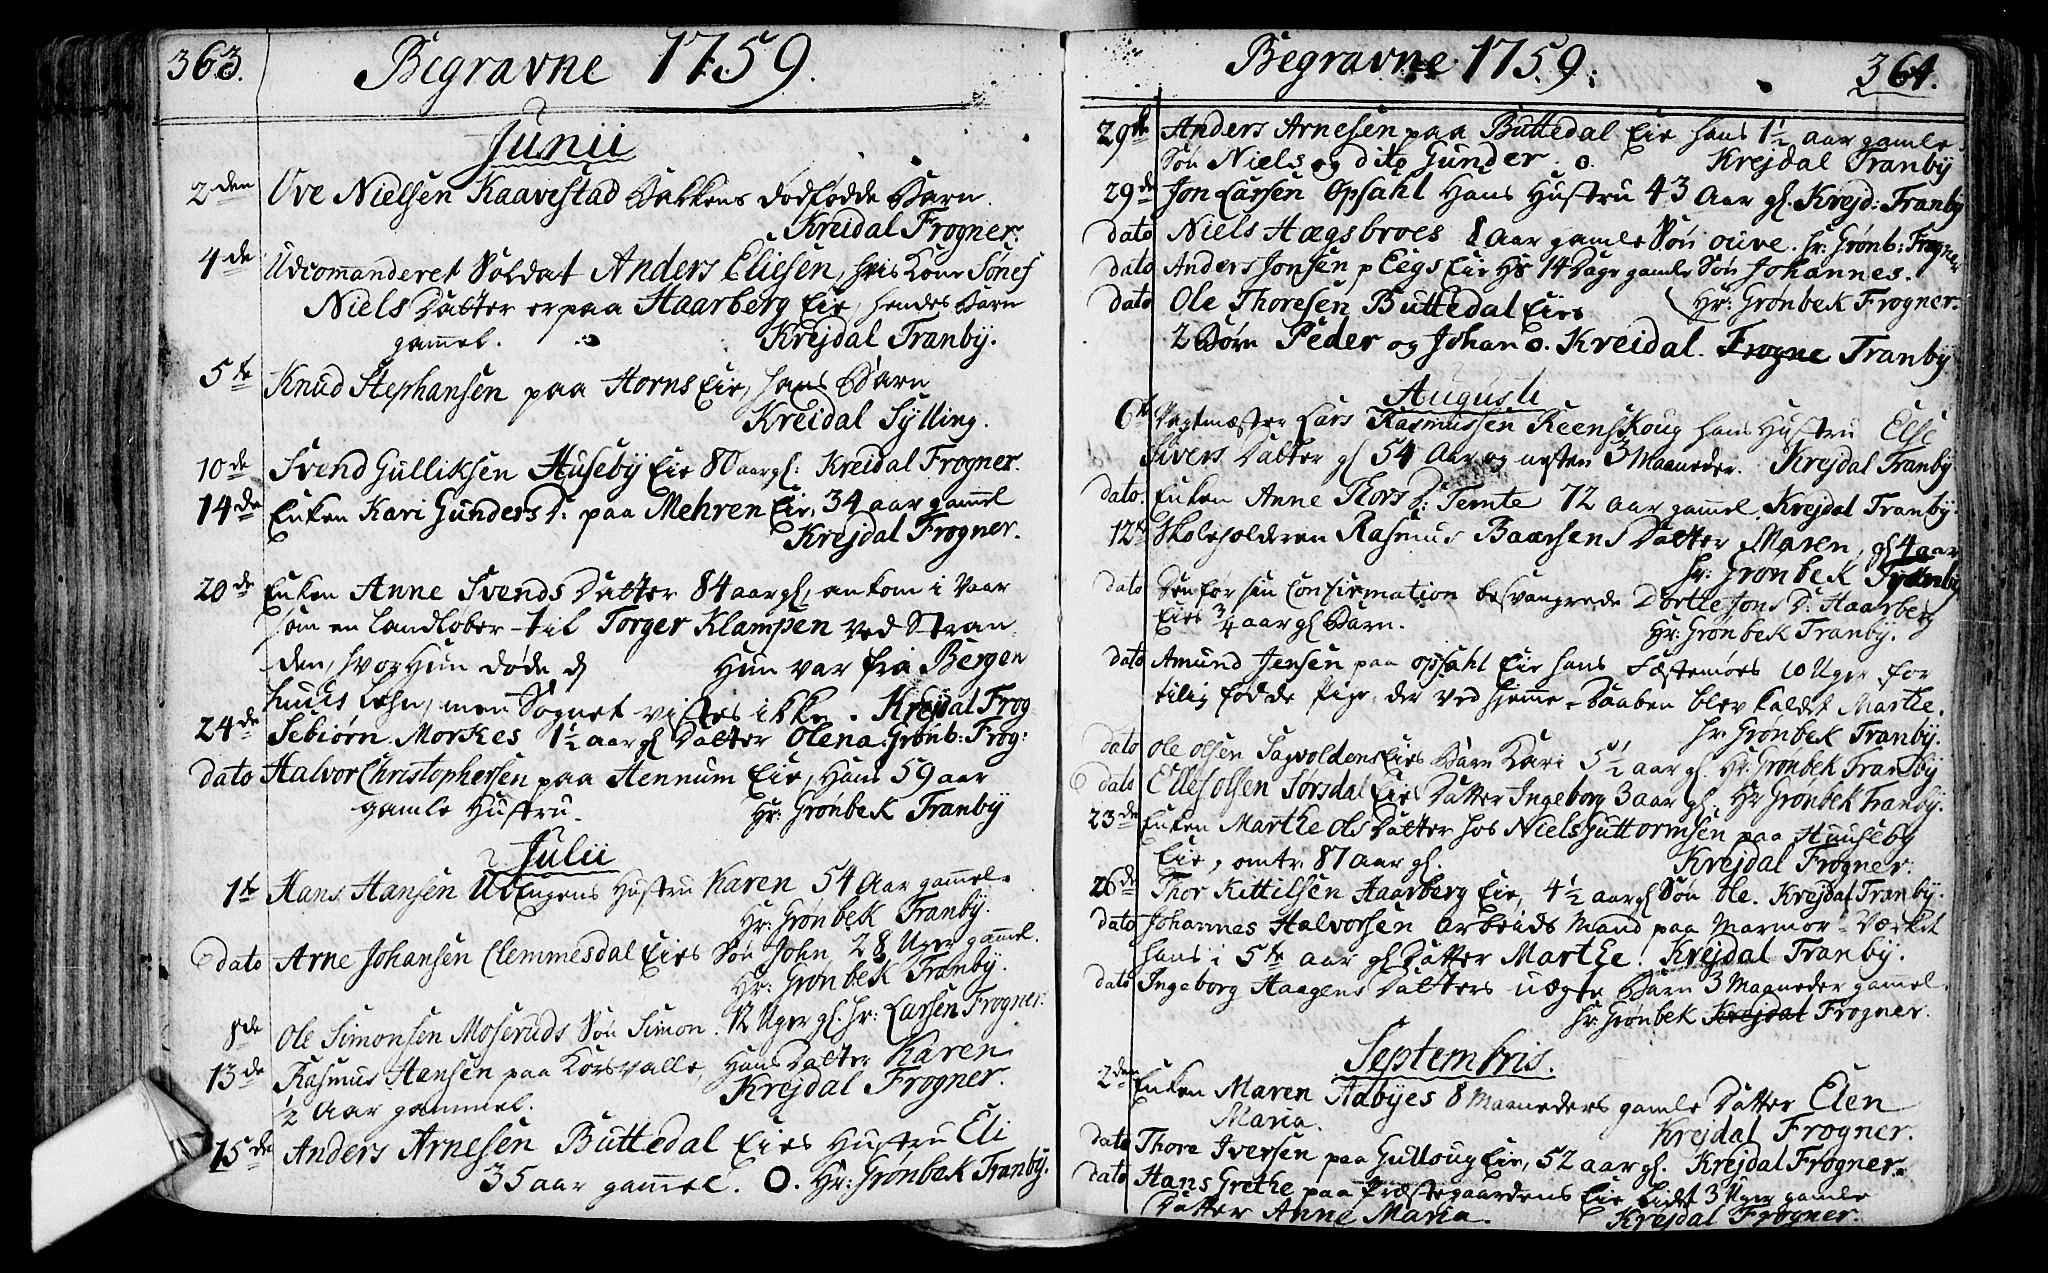 363.
Begravne 1759.
Junii
2den Ove Nielsen Kaavestad Bakkens dødfødde Barn.
Kreidal Frogner.
4de Udcomanderet Soldat Anders Eliesen, hvis Kone
Niels Datter er paa Haarberg Eie, hendes Barn
gamel. Krejdal Tranby.
5te Knud Stephansen paa Horns Eie, hans Barn
Kreidal Sylling.
10de Svend Gulliksen Huseby Eie 80 aar gl: Kreidal Frogner.
14de Enken Kari Gunders D. paa Mehren Eie, 34 aar gamel
Krejdal Frogner.
20de Enken Anne Svends Datter 84 aar gl, ankom i Vaar
som en Landløber til Torger Klampen ved Stran-
den, hvor Hun døde Hun var fra Bergen
huus Lehn, men Sognet vistes ikke. Krejdal Frog
24de Sebiørn Morkes 1½ aar gl Datter Olena. Grønb: Frog:
dato Halvor Christophersen paa Hennum Eie, Hans 59 aar
gamle Hustru. Hr: Grønbek Tranby
Julii
1te Hans Hansen Ul Engens Hustru Karen 54 Aar gamel.
Hr: Grønbek Tranby.
dato Arne Johansen Clemmesdal Eies Søn John, 28 Uger gamel.
Hr: Grønbek Tranby.
8de Ole Simonsen Moseruds Søn Simon. 12 Uger gl. Hr: Larsen Frogner.
13de Rasmus Hansen paa Korsvalle, Hans Datter Karen
½ Aar gammel. Krejdal Frogner.
15de Anders Arnesen Buttedal Eies Hustru Eli
35 aar gamel. O. Hr: Grønbek Tranby.
Begravne 1759.
364.
29de Anders Arnesen paa Buttedal Eie hans 1½ aar gamle
Søn Niels og dito Gunder. o. Krejdal Tranby
29de Jon Larsen Opsahl Hans Hustru 43 Aar gl. Krejd: Tranby
dato Niels Haegsbroes 8 Aar gamle Søn ouve. Hr: Grønb: Frogner
dato Anders Jonsen p Eegs Eie Hs 14 Dage gamle Søn Johannes.
Hr: Grønbek Frogner.
dato Ole Thoresen Buttedal Eies
2 Børn Peder og Johan o. Kreidal. Frogne Tranby
Augusti
6te Vagtmæster Lars Rasmussen Reenskoug hans Hustru Else
Sivers Datter gl 54 Aar og nesten 3 Maaneder. Krejdal Tranby
dato. Enken Anne Thors D: Temte 72 aar gamel. Krejdal Tranby.
12te Skoleholderen Rasmus Baarsens Datter Maren, gl 4 aar
Hr: Grønbek Tranby
dato Den for sin Confirmation besvangrede Dorthe Jons D. Haarberg
Eies ¾ aar gl Barn. Hr: Grønbek Tranby.
dato Amund Jensen paa Opsahl Eie hans Fæstemøes 10 Uger for
tilig fødde Pige, der ved hjemme-Daaben blev kaldet Marthe.
Hr Grønbek Tranby.
dato Ole Olsen Sagvoldens Eies Børn Kari 5½ aar gl. Hr: Grønbek Tranby
dato Elles Olsen Sørsdal Eies Datter Ingeborg 3 aar gl. Hr Grønbek Tranby.
23de Enken Marthe Ols Datter hos Niels Guttormsen paa Huuseby
Eie, omtr. 87 aar gl. Krejdal Frogner.
26de Thor Kittilsen Haarberg Eie, 4½ aar gl Søn Ole. Krejdal Tranby.
dato Johannes Halvorsen Arbeids Mand paa Marmor-Værket
hans i 5te aar gl Datter Marthe! Krejdal Tranby.
dato Ingeborg Haagens Datters uægte Barn 3 Maaneder gamel.
Hr: Grønbek Krejdal Frogner.
Septembris.
2den Enken Maren Aabyes 8 Maaneders gamle Datter Elen
Maria. Krejdal Frogner.
dato Thore Iversen paa Gulloug Eie, 52 aar gl. Krejdal Frogner.
dato Hans Grethe paa Præstegaardens Eie 3 Uger gamle
Datter Anne Maria. Krejdal Frogner.